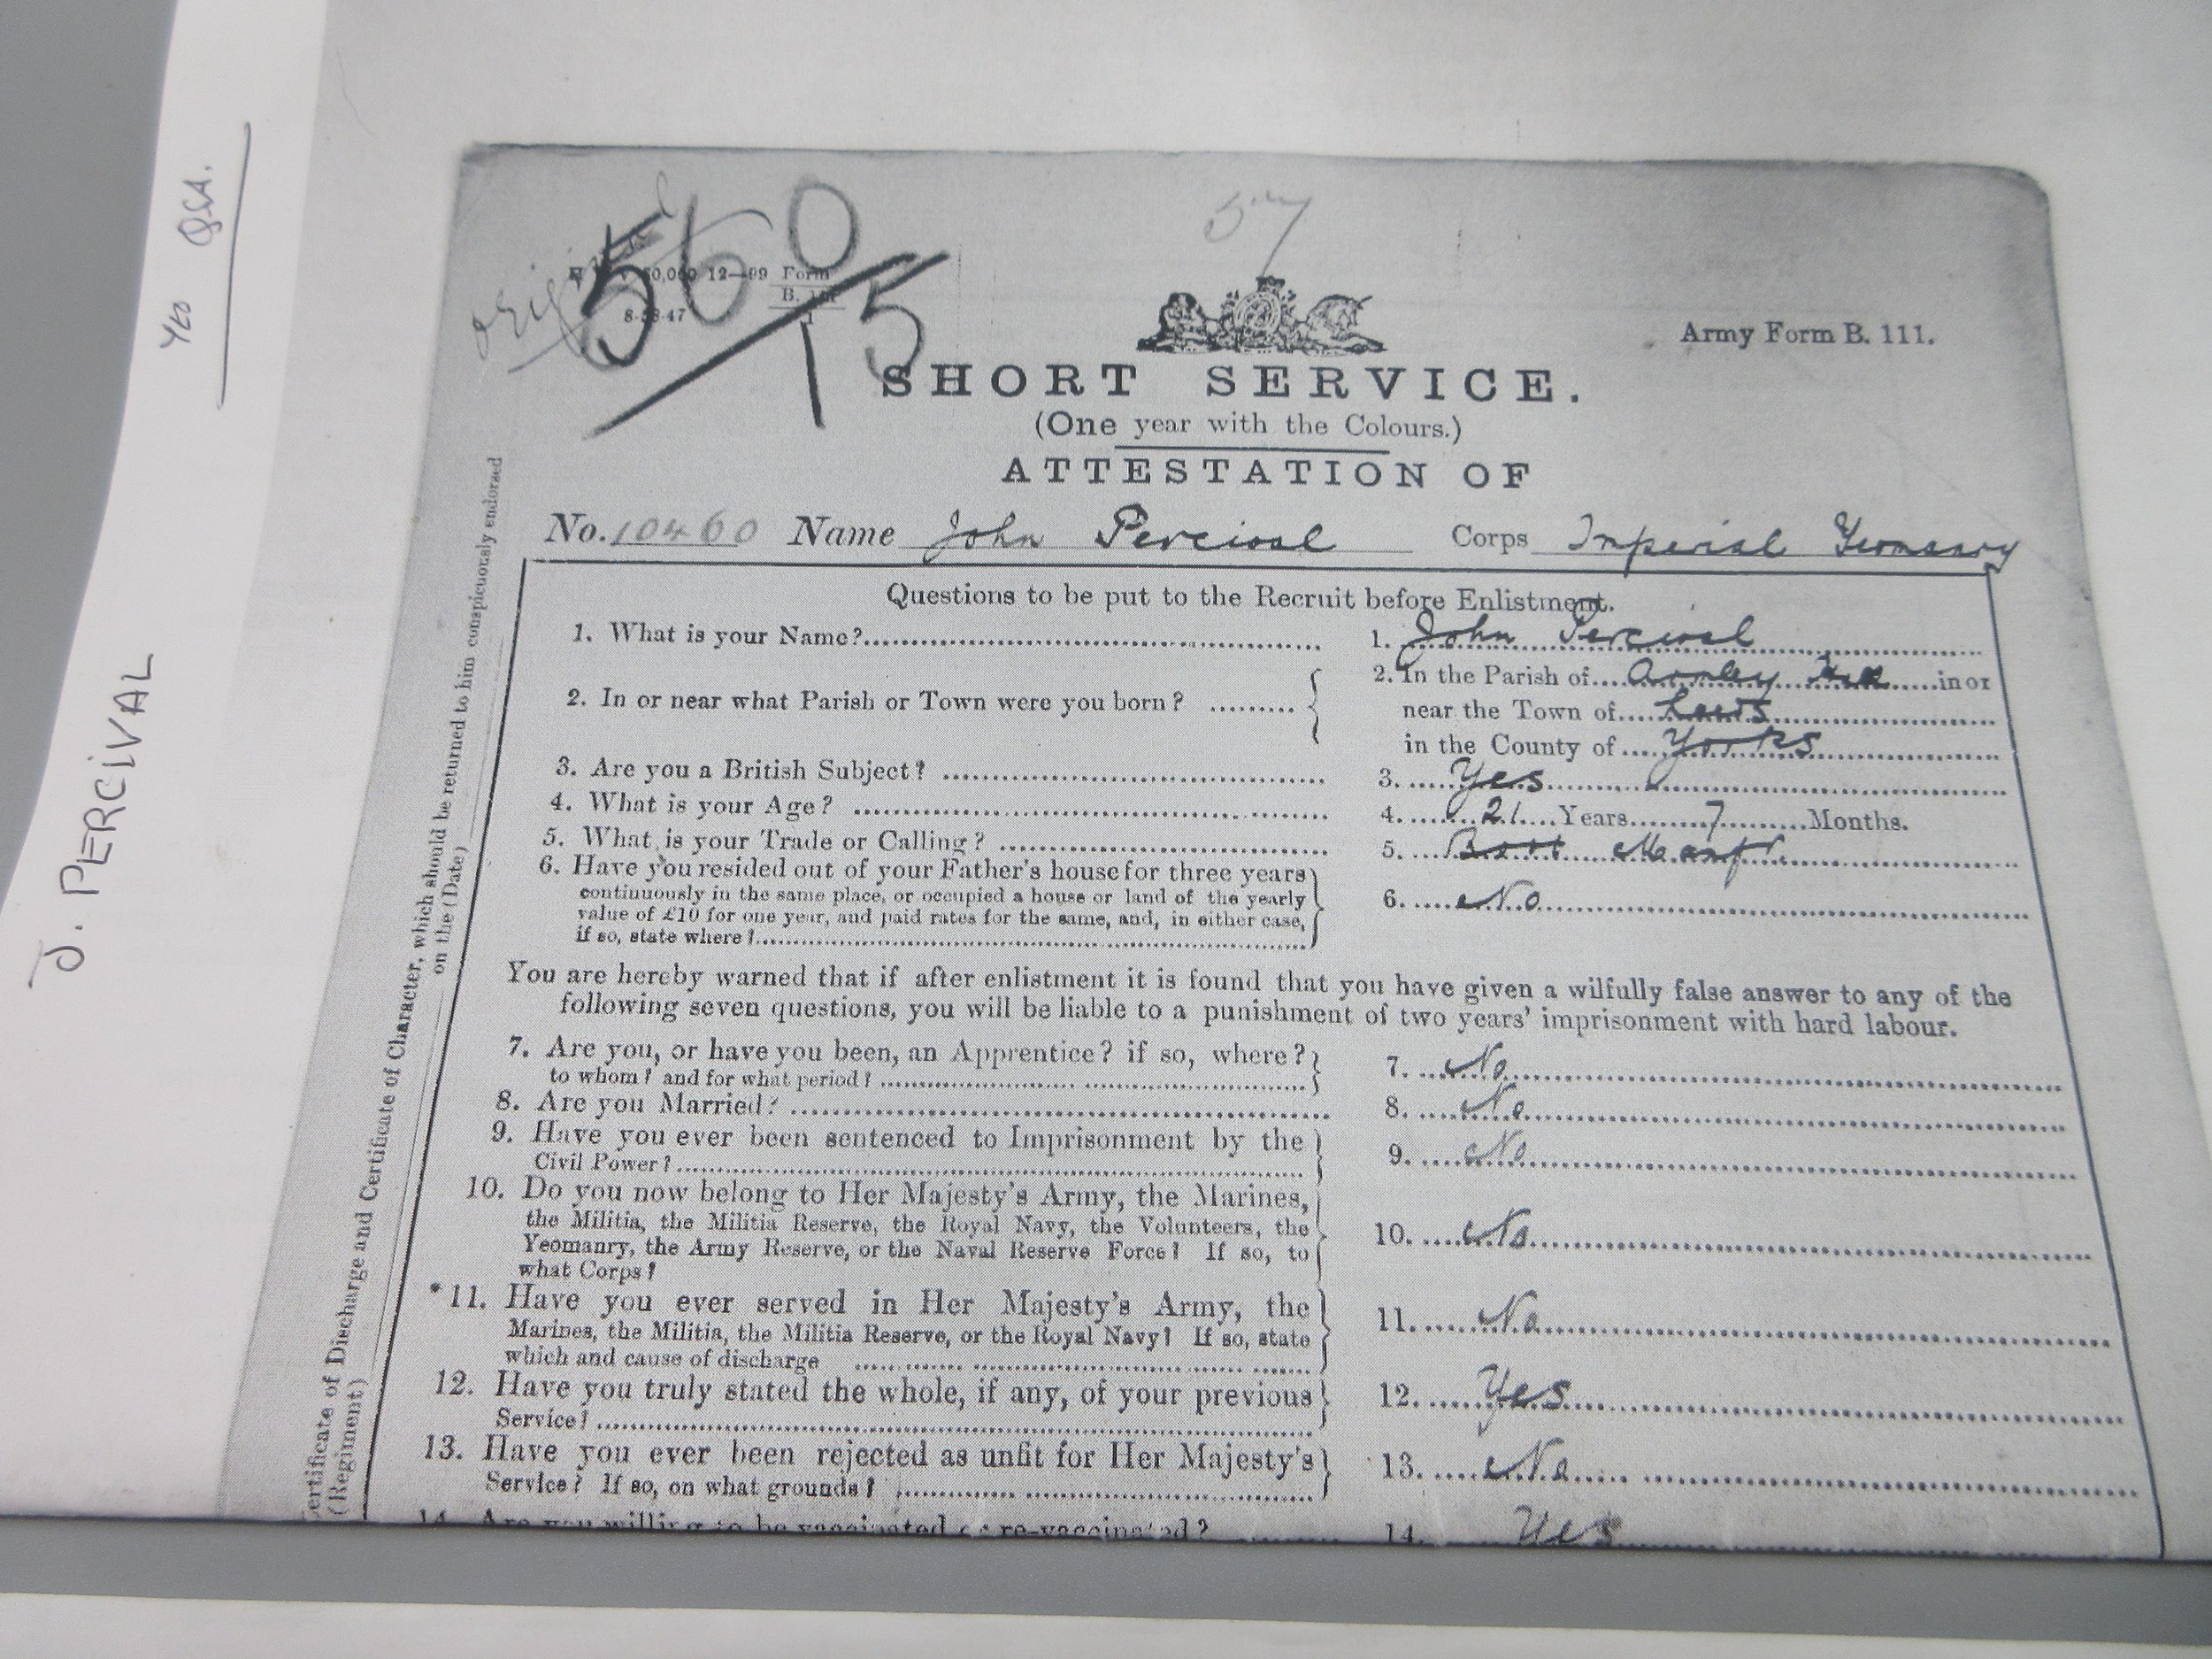 J. PERCIVAL
QSA.
560
15
12—99 Form
Army Form B. 111.
SHORT SERVICE.
(One year with the Colours.)
ATTESTATION OF
No. 10460 Name John Percival Corps Imperial Yeomanry
Questions to be put to the Recruit before Enlistment.
1. What is your Name? 1. John Percival
2. In or near what Parish or Town were you born? 2. In the Parish of Armley in or
near the Town of Leeds
in the County of Yorks
3. Are you a British Subject? 3. Yes
4. What is your Age? 4. 21 Years 7 Months.
5. What is your Trade or Calling? 5. Boot Manfr.
6. Have you resided out of your Father's house for three years
continuously in the same place, or occupied a house or land of the yearly 6. No
value of £10 for one year, and paid rates for the same, and, in either case,
if so, state where?
You are hereby warned that if after enlistment it is found that you have given a wilfully false answer to any of the
following seven questions, you will be liable to a punishment of two years' imprisonment with hard labour.
7. Are you, or have you been, an Apprentice? if so, where? 7. No
to whom? and for what period?
8. Are you Married? 8. No
9. Have you ever been sentenced to Imprisonment by the 9. No
Civil Power?
10. Do you now belong to Her Majesty's Army, the Marines,
the Militia, the Militia Reserve, the Royal Navy, the Volunteers, the 10. No
Yeomanry, the Army Reserve, or the Naval Reserve Force? If so, to
what Corps?
*11. Have you ever served in Her Majesty's Army, the 11. No
Marines, the Militia, the Militia Reserve, or the Royal Navy? If so, state
which and cause of discharge
12. Have you truly stated the whole, if any, of your previous 12. Yes
Service?
13. Have you ever been rejected as unfit for Her Majesty's 13. No
Service? If so, on what grounds?
14. Are you willing to be vaccinated or re-vaccinated? 14. Yes
Certificate of Discharge and Certificate of Character, which should be returned to him conspicuously endorsed
(Regiment) on the (Date)